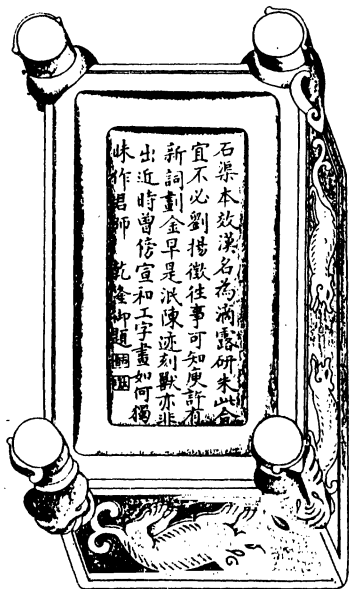 石渠本效漢名為滴露研朱此合
宜不必劉揚徵往事可知庾許有
新詞劃金早是泯陳迹刻獸亦非
出近時曾傍宣和工字畫如何獨
昧作君師 乾隆御題